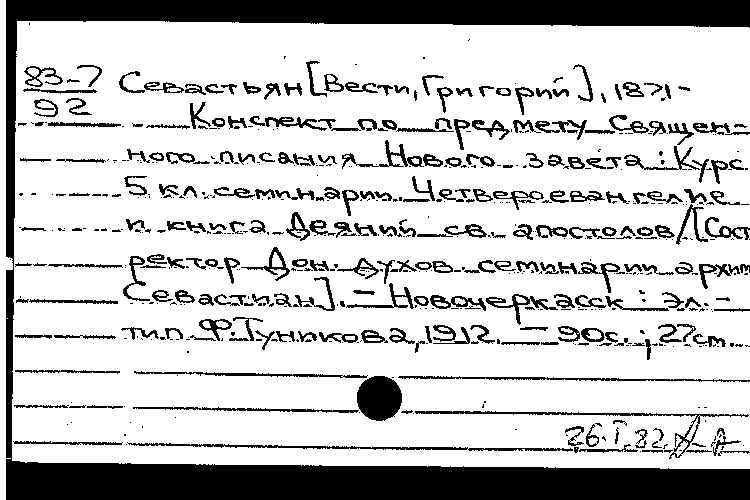 83-7
92
Севастьян [Вести, Григорий], 1871-
Конспект по предмету Священ-
ного писания Нового завета: Курс
5 кл. семинарии. Четвероевангелие
и книга Деяний св. апостолов/[Сост.
ректор Дон. духов. семинарии архим
Севастиан]. - Новочеркасск: Эл.-
тип. Ф. Туникова, 1912. - 90с.; 27см.
26.I.82